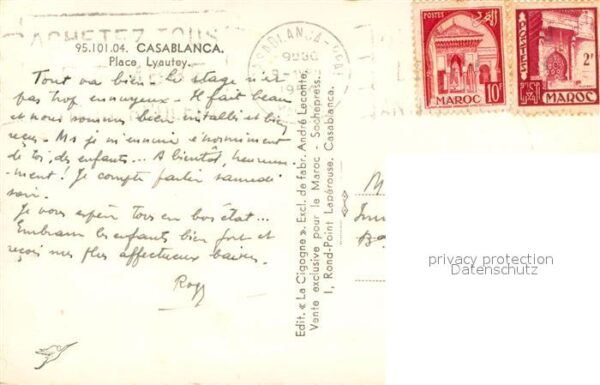 ACHETEZ TOUS
CASABLANCA
95.101.04. CASABLANCA.
Place Lyautey.
Tout va bien. Le stage n'est
pas trop ennuyeux. Il fait beau
et nous sommes bien installés et bien
reçus. Ms je m'ennuie énormément
de toi, des enfants... A bientôt, heureuse-
ment! Je compte partir samedi
soir.
Je vous espère tous en bon état...
Embrasse les enfants bien fort et
reçois mes plus affectueux baisers.
Edit. « La Cigogne ». Excl. de fabr. André Leconte,
Vente exclusive pour le Maroc - Sochepress.
1, Rond-Point Lapérouse. Casablanca.
POSTES
MAROC 10F
POSTES
2F
MAROC
M
privacy protection
Datenschutz